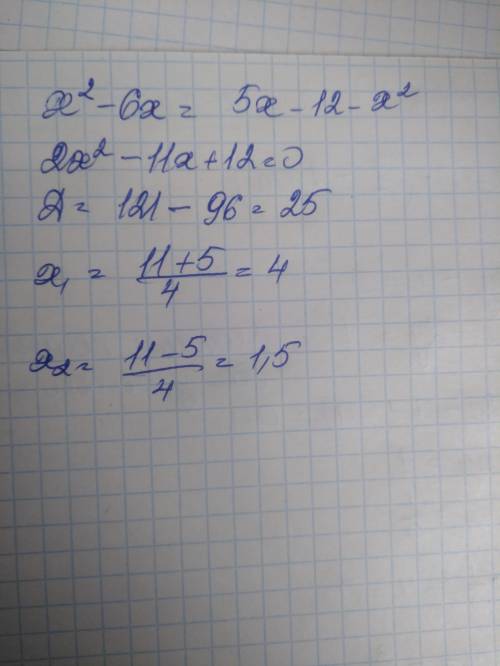 x² - 6x = 5x - 12 - x²
2x² - 11x + 12 = 0
D = 121 - 96 = 25
x₁ = (11 + 5)/4 = 4
x₂ = (11 - 5)/4 = 1,5